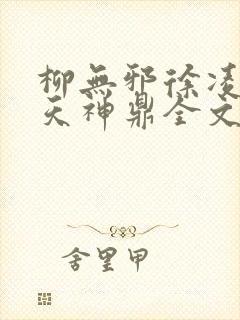 柳無邪徐凌
天神鼎全文
舍里甲